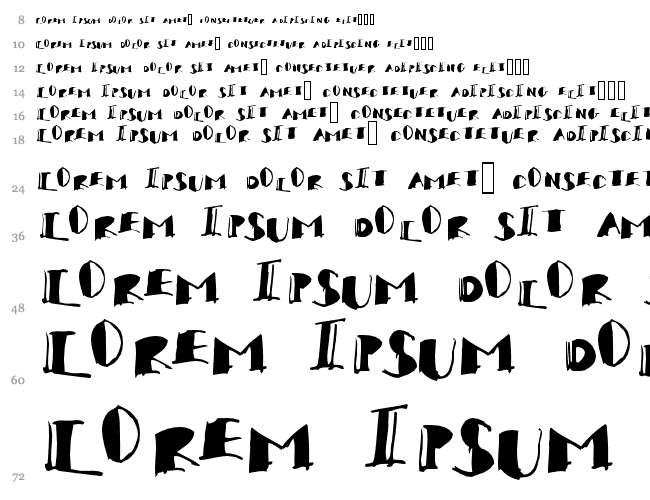 8 LOREM IPSUM DOLOR SIT AMET▯ CONSECTETUER ADIPISCING ELIT▯▯▯
10 LOREM IPSUM DOLOR SIT AMET▯ CONSECTETUER ADIPISCING ELIT▯▯▯
12 LOREM IPSUM DOLOR SIT AMET▯ CONSECTETUER ADIPISCING ELIT▯▯▯
14 LOREM IPSUM DOLOR SIT AMET▯ CONSECTETUER ADIPISCING ELIT▯▯▯
16 LOREM IPSUM DOLOR SIT AMET▯ CONSECTETUER ADIPISCING ELIT
18 LOREM IPSUM DOLOR SIT AMET▯ CONSECTETUER ADIPISCIN
24 LOREM IPSUM DOLOR SIT AMET▯ CONSECTET
36 LOREM IPSUM DOLOR SIT AM
48 LOREM IPSUM DOLOR S
60 LOREM IPSUM DOL
72 LOREM IPSUM